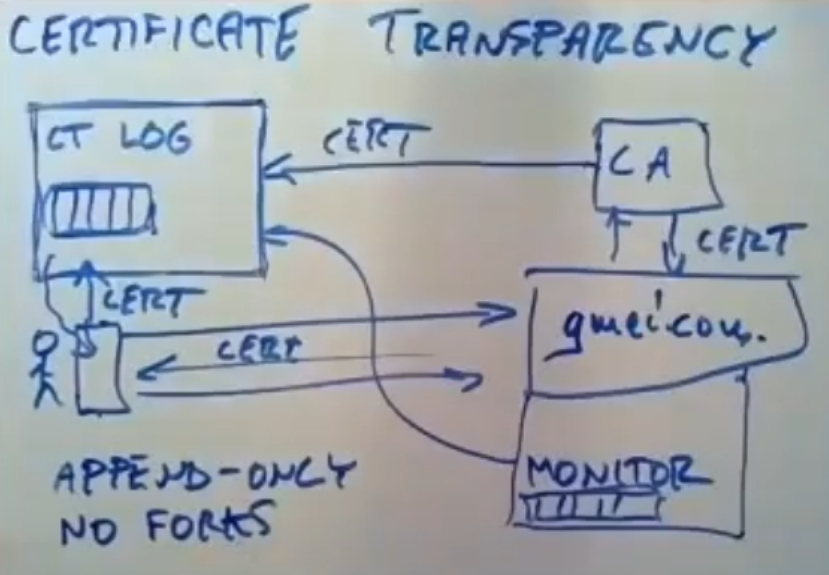 CERTIFICATE TRANSPARENCY
CT LOG
CERT
CA
CERT
CERT
CERT
MONITOR
APPEND-ONLY
NO FORKS